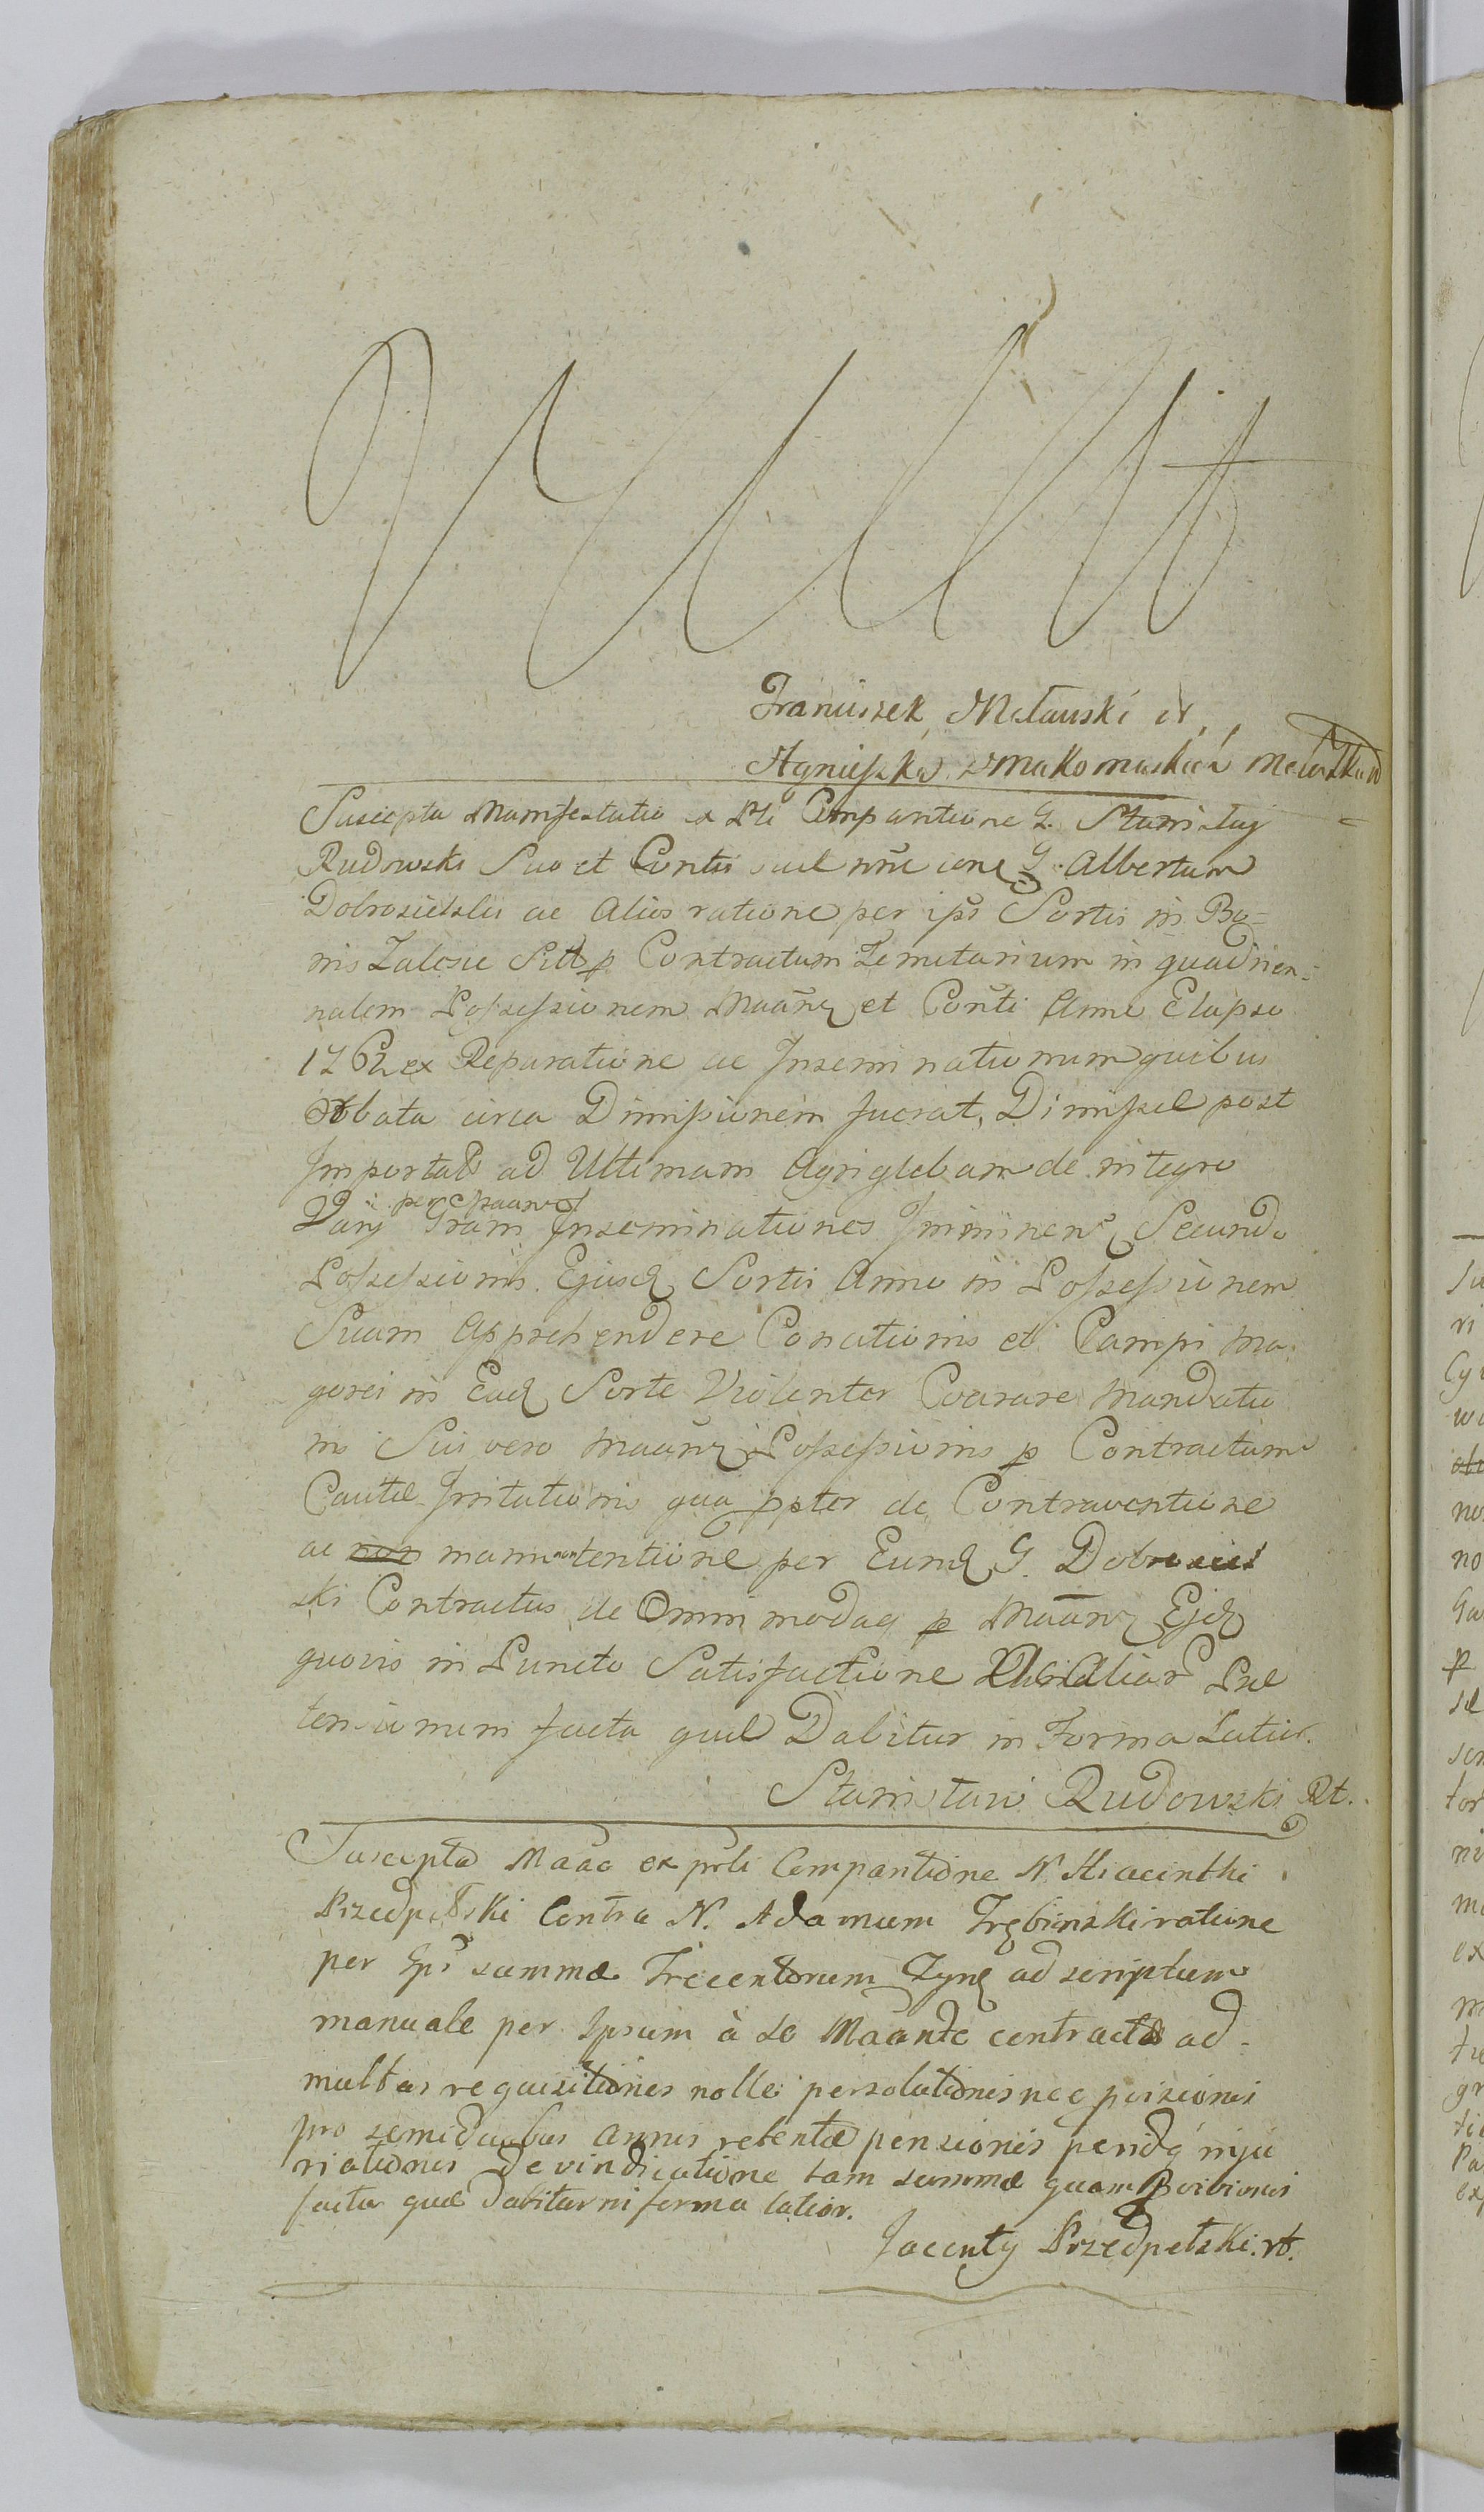 Franciszek Mełauski
Agnieszka z Makomaskich
Suscepta Manifestatio ex Pti Comparitione G. Stanislaj
Rudowski Suo et Contli suae nne cone G. Albertum
Dobrosielski ac Alios ratione per ips Sortis in Bo-
nis Zalesie Sitt p Contractum in quadrien-
nalem Possessionem Maanz et Conti Anni Elapso
1762 ex Reparatione ac Inseminationum quibus
Orbata circa Dimissionem fuerat, Dimissae post
Importat ad Ultimam Agri glebam de integro
Gram Inseminationes Imminen Secundo
Possessionis Ejusd Sortis Anno in Possessionem
Suam Apprehendere Conationis et Campi Ma-
goris in Ead Sorte Violenter Coarare Mandatio
nis Sui vero Maanz Possessionis p Contractum
Cautae Irritationis qua ppter de Contraventione
ac non manu non tentione per Eund G. Dobrosiel
ski Contractus de Omnimodaq p Maanz Ejd
quovis in Puncto Satisfactione Aliar Prae
tensionum facta quae Dabitur in Forma Latior.
Stanisław Rudowski Rt.
Suscepta Maão ex prti Comparitione N. Hiacinthi
Przedpełski Contra N. Adamum Trębinski ratione
per Ips summae Trecentorum Tynf ad scriptum
manuale per Ipsum à Se Maante contractae ad
multas requisitiones nolle persolutionis nec
pro semi duobus Annis retentae pensionis pendq inju
riationis De vindicatione tam summae quam
facta quae dabitur in forma latior.
Jacenty Przedpełski. rt.